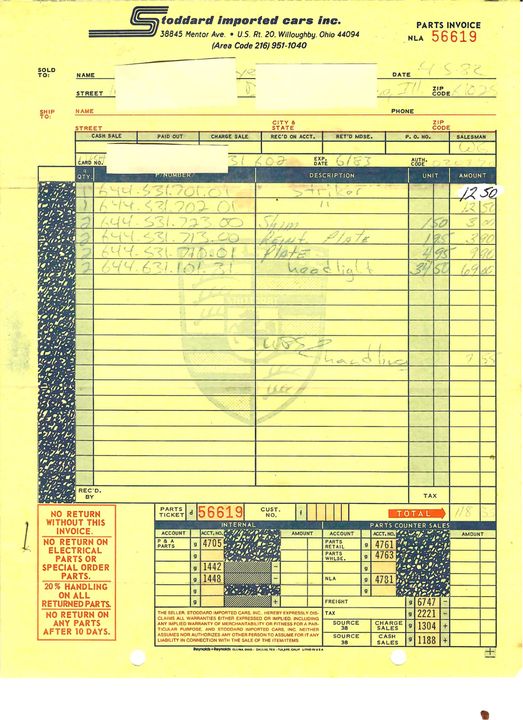 Stoddard imported cars inc.
38845 Mentor Ave. • U.S. Rt. 20, Willoughby, Ohio 44094
(Area Code 216) 951-1040
PARTS INVOICE
NLA 56619
SOLD TO:
NAME DATE 4-5-82
STREET Ill ZIP CODE
SHIP TO:
NAME PHONE
STREET CITY & STATE ZIP CODE
CASH SALE PAID OUT CHARGE SALE REC'D ON ACCT. RET'D MDSE. P. O. NO. SALESMAN
CARD NO. 31 602 EXP. DATE 6/83 AUTH. CODE
QTY. P/NUMBER DESCRIPTION UNIT AMOUNT
1 644.531.701.01 Striker 12 50
1 644.531.702.01 " 12 50
2 644.531.723.00 Shim 1 50 3 00
2 644.531.713.00 Plate 1 95 3 90
2 644.531.710.01 Plate 4 95 9 90
2 644.631.101.31 headlight 34 50 69 00
UPS &
handling 7 55
REC'D. BY TAX
PARTS TICKET d 56619 CUST. NO. f TOTAL 118 35
INTERNAL PARTS COUNTER SALES
ACCOUNT ACCT. NO. AMOUNT ACCOUNT ACCT. NO. AMOUNT
P & A PARTS g 4705 PARTS RETAIL g 4761
g PARTS WHLSE. g 4763
g 1442 – g
g 1448 – NLA g 4781
g
FREIGHT g 6747 –
TAX g 2221 –
SOURCE 38 CHARGE SALES g 1304 +
SOURCE 38 CASH SALES g 1188 +
NO RETURN
WITHOUT THIS
INVOICE.
NO RETURN ON
ELECTRICAL
PARTS OR
SPECIAL ORDER
PARTS.
20% HANDLING
ON ALL
RETURNED PARTS.
NO RETURN ON
ANY PARTS
AFTER 10 DAYS.
THE SELLER, STODDARD IMPORTED CARS, INC., HEREBY EXPRESSLY DIS-
CLAIMS ALL WARRANTIES EITHER EXPRESSED OR IMPLIED, INCLUDING
ANY IMPLIED WARRANTY OF MERCHANTABILITY OR FITNESS FOR A PAR-
TICULAR PURPOSE, AND STODDARD IMPORTED CARS, INC. NEITHER
ASSUMES NOR AUTHORIZES ANY OTHER PERSON TO ASSUME FOR IT ANY
LIABILITY IN CONNECTION WITH THE SALE OF THE ITEM/ITEMS
Reynolds + Reynolds CELINA, OHIO · DALLAS, TEX · TULARE, CALIF LITHO IN U.S.A.